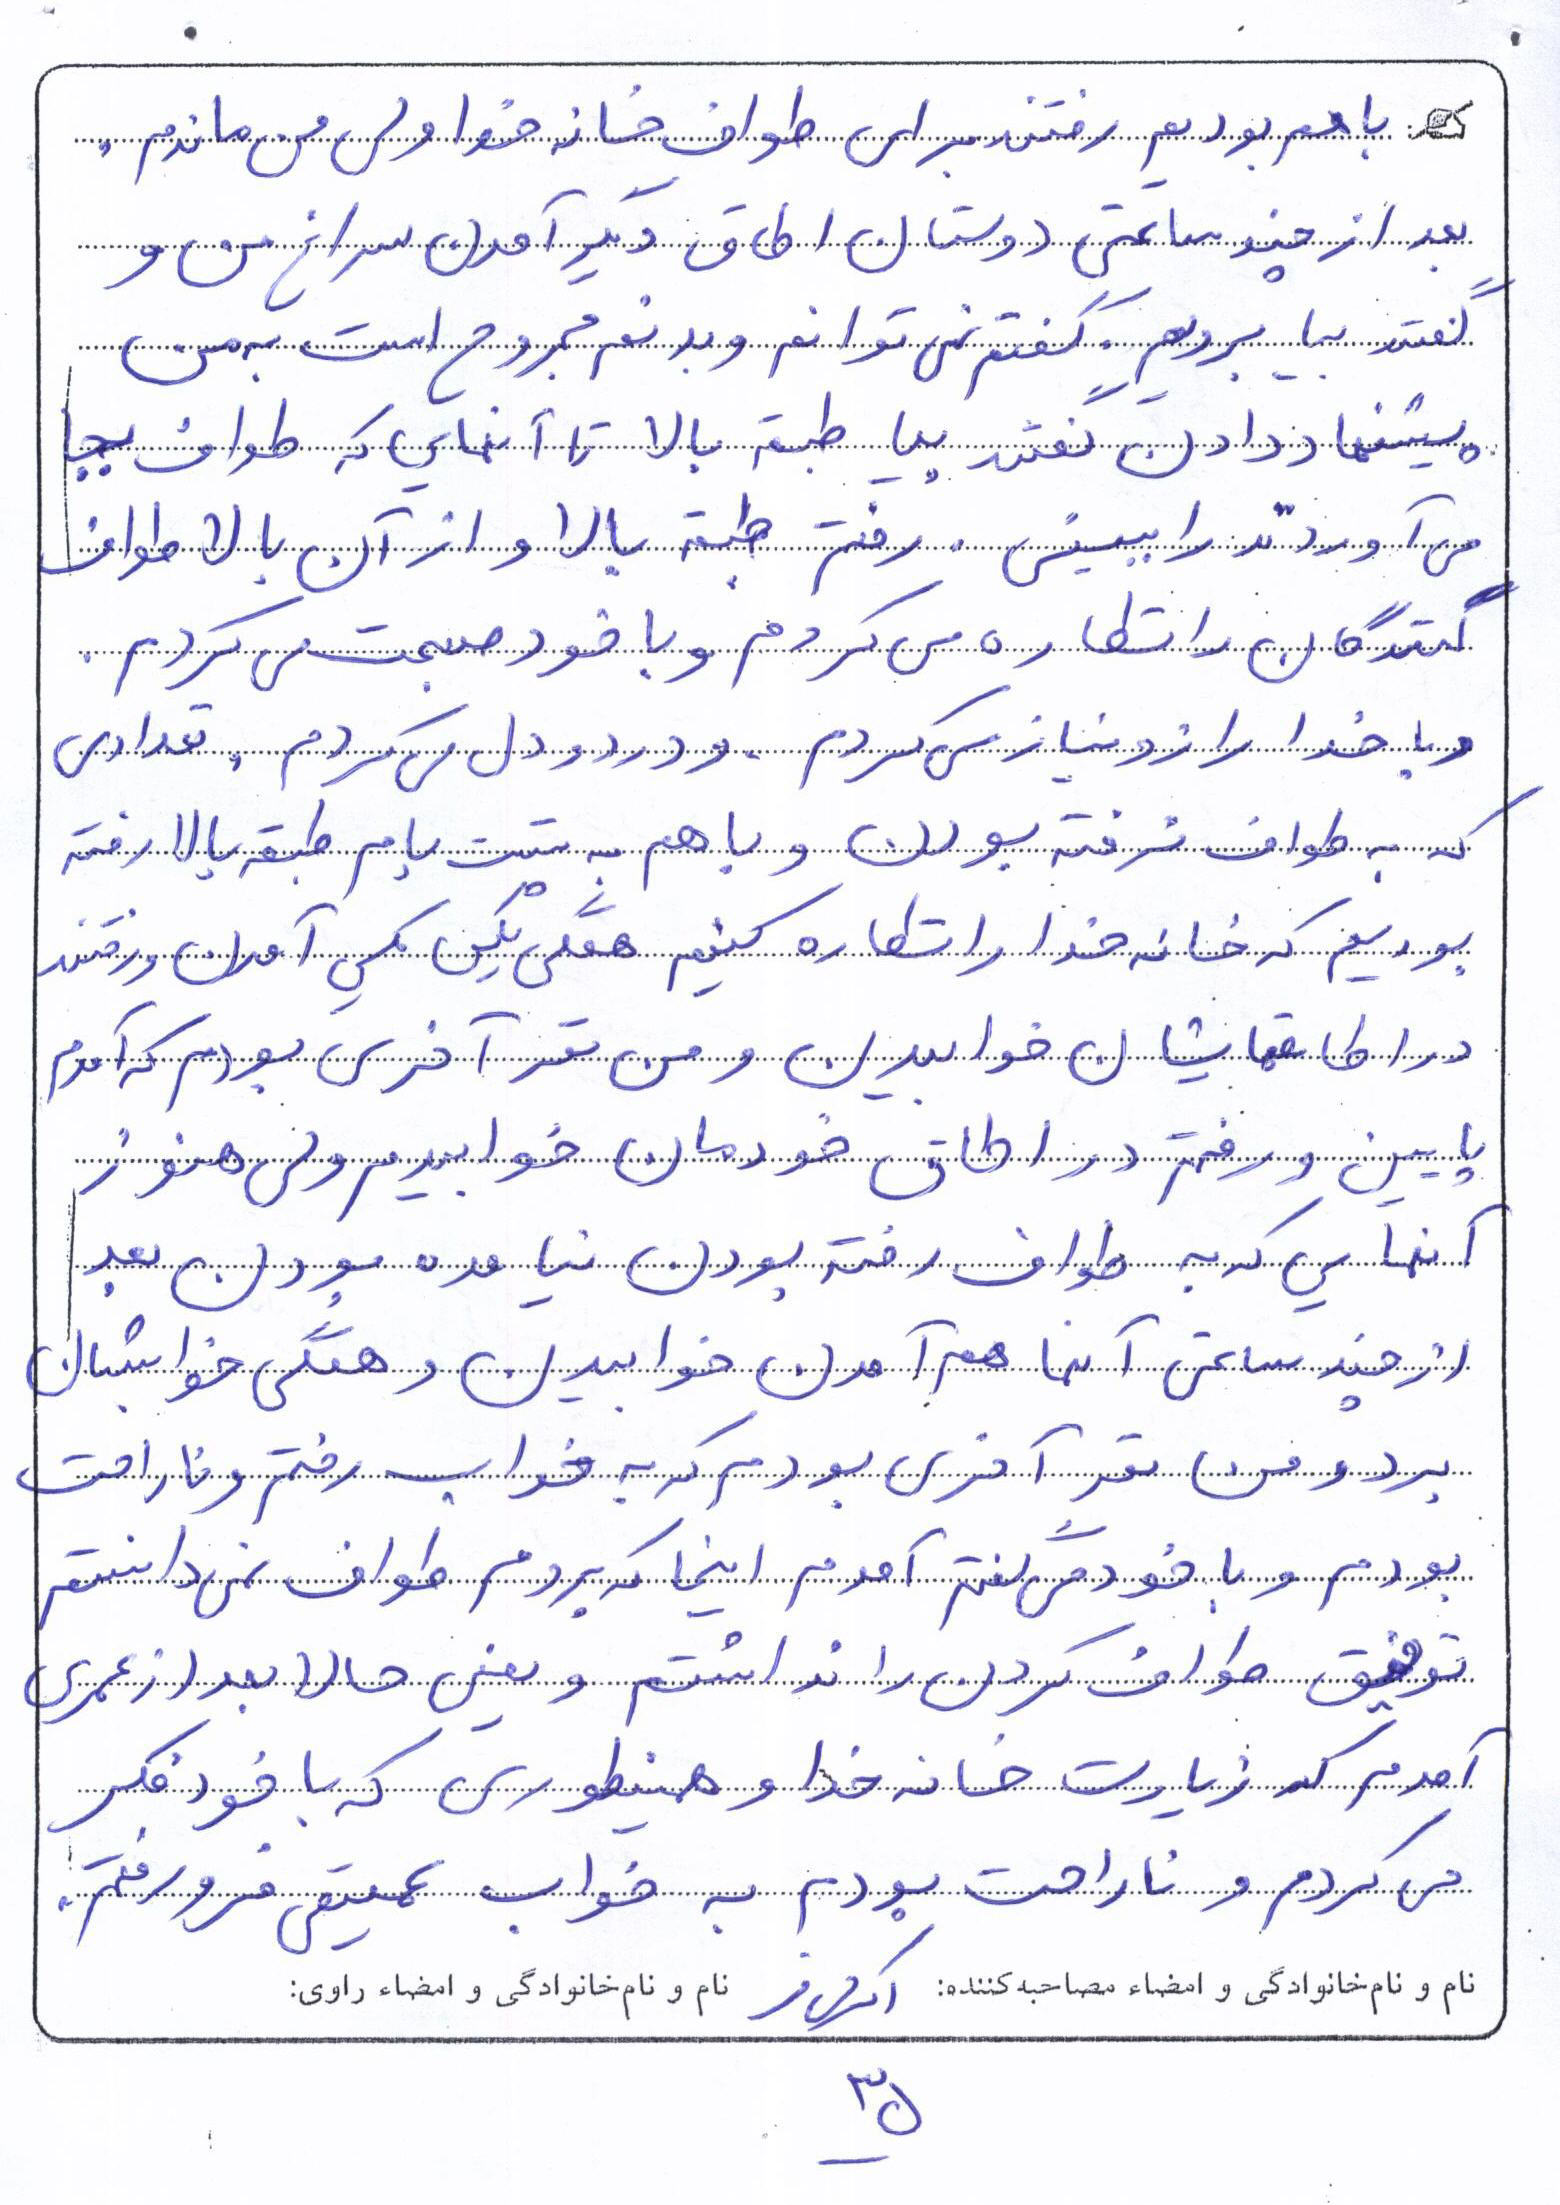 باهم بودیم رفتند برای طواف خانه خدا ولی من ماندم .
بعد از چند ساعتی دوستان اطاق دیگر آمدن سراغ من و
گفتند بیا برویم . گفتم نمی توانم و بدنم مجروح است به من
پیشنهاد دادن گفتند بیا طبقه بالا تا آنهایی که طواف بجا
می آوردند را ببینی . رفتم طبقه بالا و از آن بالا طواف
کنندگان را نظاره می کردم و با خود صحبت می کردم .
و با خدا راز و نیاز می کردم . و درد و دل می کردم . تعدادی
که به طواف نرفته بودن و باهم به پشت بام طبقه بالا رفته
بودیم که خانه خدا را نظاره کنیم همگی یکی یکی آمدن و رفتند
در اطاقهایشان خوابیدن و من نفر آخری بودم که آمدم
پایین و رفتم در اطاق خودمان خوابیدم ولی هنوز
آنهایی که به طواف رفته بودن نیامده بودن بعد
از چند ساعتی آنها هم آمدن خوابیدن و همگی خوابشان
برد و من نفر آخری بودم که به خواب رفتم و ناراحت
بودم و با خود می گفتم آمدم اینجا که بروم طواف نمی دانستم
توفیق طواف کردن را نداشتم و یعنی حالا بعد از عمری
آمدم که زیارت خانه خدا و همینطوری که با خود فکر
می کردم و ناراحت بودم به خواب عمیقی فرو رفتم .
نام و نام‌خانوادگی و امضاء مصاحبه‌کننده: نام و نام‌خانوادگی و امضاء راوی:
۳۵